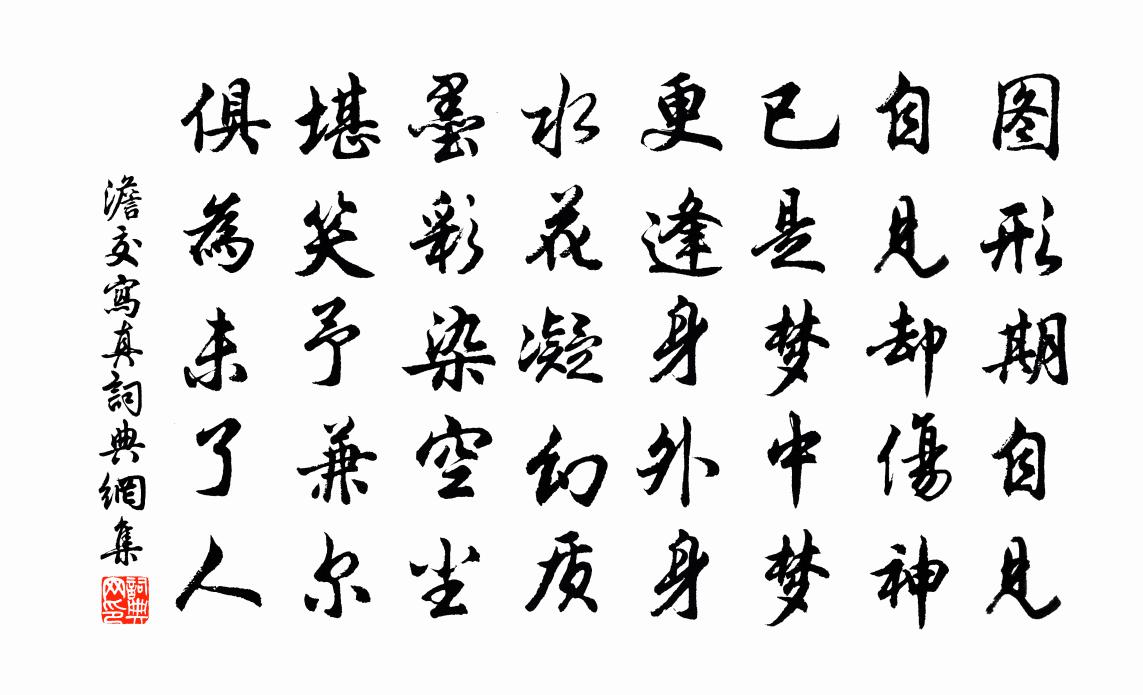 图形期自见
自见却傷神
已是梦中梦
更逢身外身
水花凝幻质
墨彩染空尘
堪笑予兼尔
俱為未了人
澹交寫真詞典網集
詞典网印